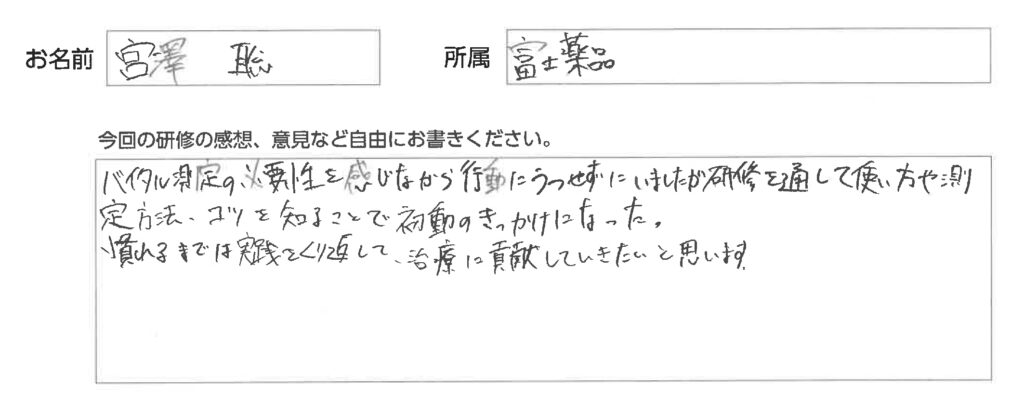 お名前 宮澤 聡 所属 富士薬品
今回の研修の感想、意見など自由にお書きください。
バイタル測定の必要性を感じながら行動にうつせずにいましたが研修を通して使い方や測
定方法、コツを知ることで初動のきっかけになった。
慣れるまでは実践をくり返して、治療に貢献していきたいと思います。